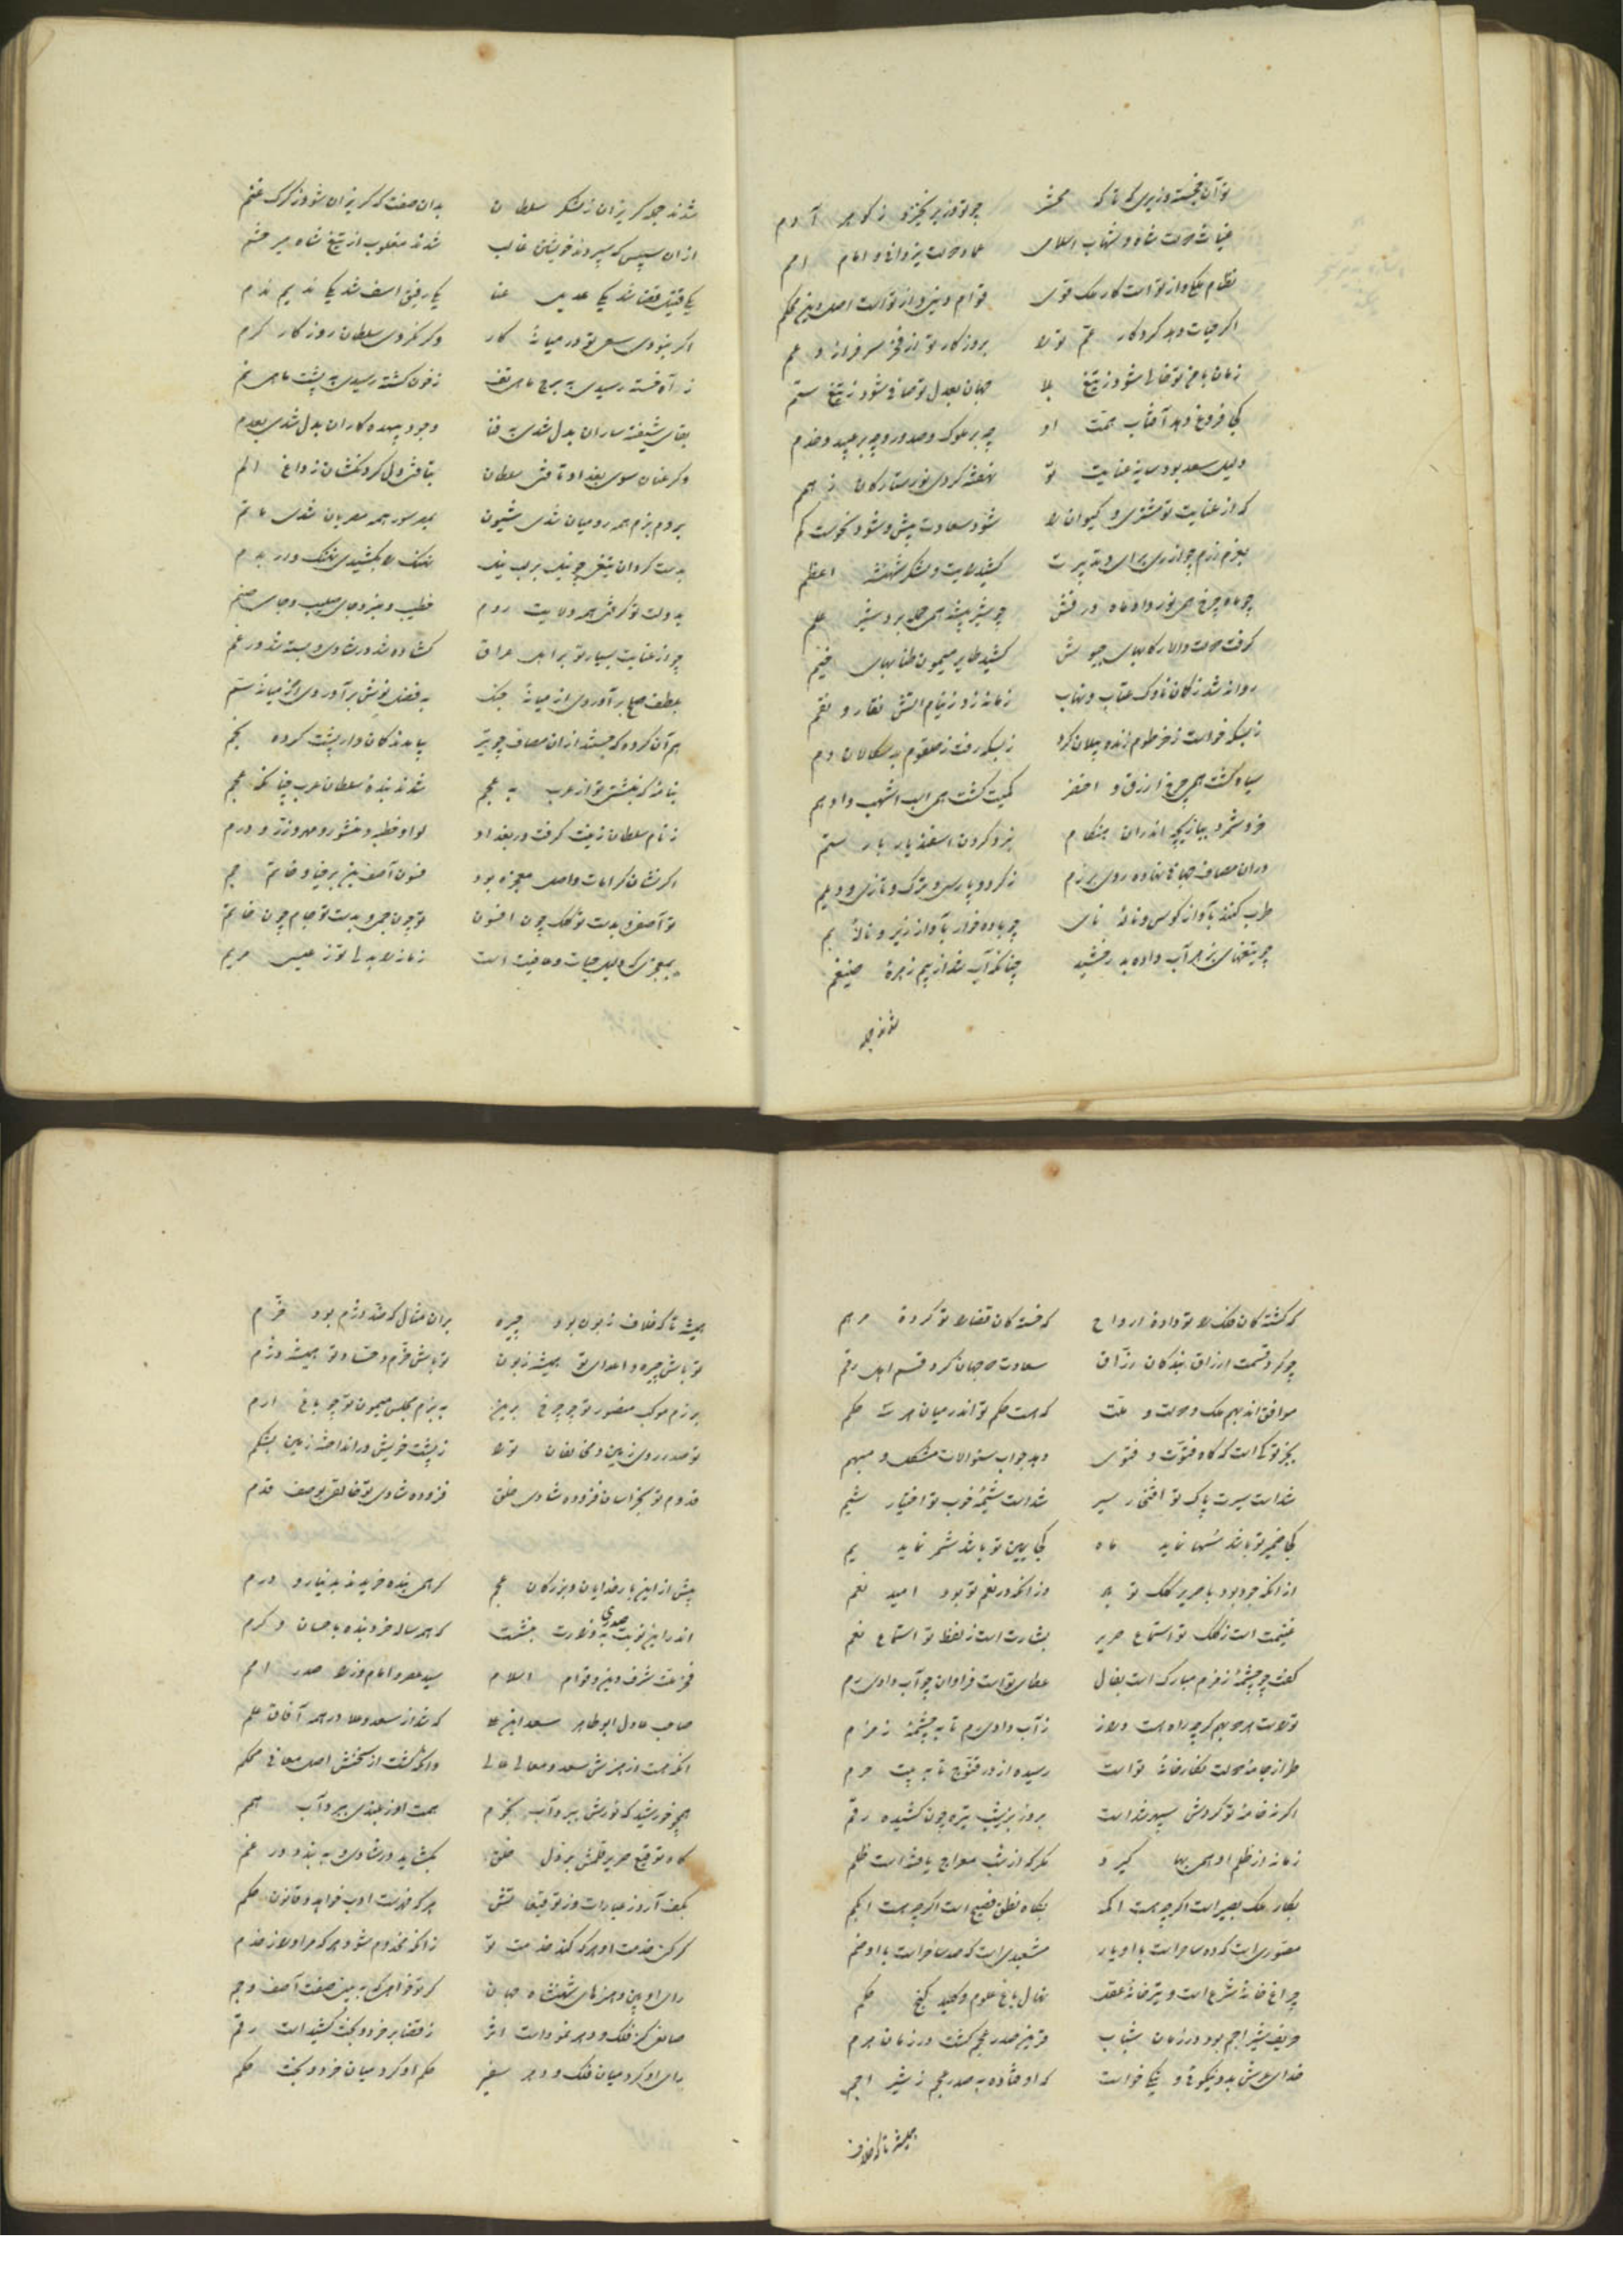 تو آن خجسته وزیری که تا که محشر چو تو وزیر نخیزد ز گوهر آدم
غیاث دولت شاه و شهاب اسلامی عماد دولت یزدانی و امام امم
نظام ملکی و از تو است کار ملک قوی قوام دینی و از تو است اصل دین محکم
اگر حیات دهد کردگار عم تو را بروزگار تو از فخر سرفرازد عم
زمان با من تو خالی شود ز تیغ بلا جهان بعدل تو صافی شود ز تیغ ستم
کجا فروغ دهد آفتاب همت او چه بر ملوک و صدور و چه بر عبید و خدم
دلیل سعد بود سایه عنایت تو
که از عنایت تو مشتری و کیوان را شود سعادت بیش و شود نحوست کم
بعزم رزم چو از ری برای و تدبیرت کشید رایت و لشکر شهنشه اعظم
چو ماه چرخ همی نور داد ماه درفش چو شیر بیشه همی حمله برد شیر علم
گرفت دولت والا رکابهای جیوش کشید طایر میمون طنابهای خیم
روانه شد ز کمان ناوک عتاب و نهاب زمانه زد ز نیام آتش نقار و نقم
ز بسکه خواست ز خرطوم زنده پیلان گرد ز بسکه رفت ز حلقوم بدسگالان دم
سیاه گشت همی چرخ ازرق و اخضر کمیت گشت همی اسب اشهب و ادهم
خرد شمرد ببازیچه اندران هنگام نبرد کردن اسفندیار با رستم
در آن مصاف جهانی نهاده روی برزم ز کرد و پارسی و ترک و تازی و دیلم
طرب کنند بآواز کوس و ناله نای چو باده خوار بآواز زیر و ناله بم
چو تیغهای بزهر آب داده بدرخشید چنانکه آب شد از بیم زهره ضیغم
شدند جمله
شدند جمله گریزان ز لشکر سلطان بدان صفت که گریزان شود ز گرگ غنم
از آن سپس که سپردند خویشتن غالب شدند مغلوب از تیغ شاه میر حشم
یکی قتیل قضا شد یکی عدیل عنا یکی رفیق اسف شد یکی ندیم ندم
اگر نبودی سعی تو در میانه کار وگر نکردی سلطان روزگار کرم
ز آه خسته رسیدی به برج ماهی تف ز خون کشته رسیدی به پشت ماهی نم
بقای شیفته ساران بدل شدی به فنا وجود بیهده کاران بدل شدی بعدم
وگر عنان سوی بغداد تافتی سلطان بتافتی دل گردنکشان ز داغ الم
بروم بزم همه رومیان شدی شیون بمصر سور همه مصریان شدی ماتم
بدست گردان تیغی چو نیل بر لب نیل نهنگ را بکشیدی نهنگ وار بدم
بدولت تو گرفتی همه ولایت روم خطیب و منبر و جای صلیب و جای صنم
چو از عنایت بسیار تو بر اهل عراق گشاده شد در شادی و بسته شد در غم
بلطف صلح برآوردی از میانه جنگ به فضل نوش برآوردی از میانه سم
هر آن گروه که جستند از آن مصاف چو تیر بیامدند کمان وار پشت کرده بخم
بنامه کز بنشتی تو از عرب به عجم شدند بنده سلطان عرب چنانکه عجم
ز نام سلطان زینت گرفت در بغداد لوا و خطبه و منشور و مهر و زر و درم
اگر نشان کرامات و اصل معجزه بود فسون آصف بن برخیا و خاتم جم
تو آصفی و بدست تو کلک چون افسون تو چون جمی و بدست تو جام چون خاتم
بمعجزی که دلیل حیات و عافیت است زمانه را بدلی تو ز عیسی مریم
که کشتگان فلک را تو داده ارواح که خستگان قضا را تو کرده مرهم
چو کرد قسمت ارزاق بندگان رزاق سعادت دو جهان کرد قسم اهل رقم
موافق اند بهم ملک و دولت و ملت که هست حکم تو اندر میان هر سه حکم
بجز تو کی است که گاه فتوت و فتوی دهد جواب سئوالات مشکل و مبهم
شداست سیرت پاک تو افتخار سیر شداست شیمه خوب تو اختیار شیم
کجا ضمیر تو باشد سها نماید ماه کجا یمین تو باشد شمر نماید یم
از آنکه جود بود با صریر کلک تو به وز آنکه در نعم تو بود امید نعم
غنیمت است ز کلک تو استماع صریر بشارت است ز لفظ تو استماع نعم
کفت چو چشمه زمزم مبارک است بفال عطای تو است فراوان چو آب وادی رم
تو راست هر دو بهم گر چه راه هست دراز ز آب وادی رم تا به چشمه زمزم
طراز جامه دولت نگارخانه تو است رسیده از در قنوج تا به بیت حرم
اگر نه خامه تو گردش سپهر شداست بروز بر ز شب تیره چون کشیده رقم
زمانه از ظلم او همی بها گیرد مگر که از شب معراج یافته است ظلم
بکار ملک بصیر است اگر چه هست اکمه بگاه نطق فصیح است اگر چه هست ابکم
مصوری است که ده ساحر است با او یار مشعبدی است که صد ساحر است با او ضم
چراغ خانه شرع است و تیر خانه عقل نهال باغ علوم و کلید گنج حکم
حریف شیر اجم بود در زمان شباب قرین صدر عجم گشت در زمان هرم
خدای عرش بدو نیکوئی و نیکی خواست که اوفتاده به صدر عجم ز شیر اجم
همیشه تا که خلاف
همیشه تا که خلاف زبون بود چیره بر آن مثال که ضد دژم بود خرم
تو باش چیره و اعدای تو همیشه زبون تو باش خرم و حساد تو همیشه دژم
برزم موکب منصور تو چو چرخ برین به بزم مجلس میمون تو چو باغ ارم
تو صدر روی زمین و مخالفان تو را ز پشت خویش در انداخته زمین بشکم
قدوم تو بخراسان فزوده شادی خلق فزوده شادی تو خالق بوصف قدم
پیش از این بار خدایان و بزرگان عجم گر همی بنده خریدند بدینار و درم
اندر این نوبت صدری به وزارت بنشست که همه ساله خرد بنده باحسان و کرم
فخر ملت شرف دین و قوام اسلام سید عصر و امام وزرا صدر امم
صاحب عادل ابو طاهر سعد ابن علی که شد از سعد و علا در همه آفاق علم
آنکه هست از هنرش سعد و معالی عالی وآنکه گشت از سخنش اصل معانی محکم
همچو خورشید که نورش ببرد آب نجوم همت او ز بلندی ببرد آب همم
گاه توقیع صریر قلمش بر دل خلق بگشاید در شادی و به بندد در غم
بکف آرد ز عبارات وز توقیعاتش هر که خدمت ادب خواهد و قانون حکم
گر کنی خدمت او هر که کند خدمت تو زانکه مخدوم شود هر که مر او راز خدم
رای او بین و هنرهای شهنشاه جهان گر تو خواهی که به بینی صفت آصف و جم
صاحبی کز فلک و دهر نمودا است اثر ز قضا بر خرد و بخت کشیداست رقم
رای او کرد میان فلک و دهر سفیر حکم او کرد میان خرد و بخت حکم